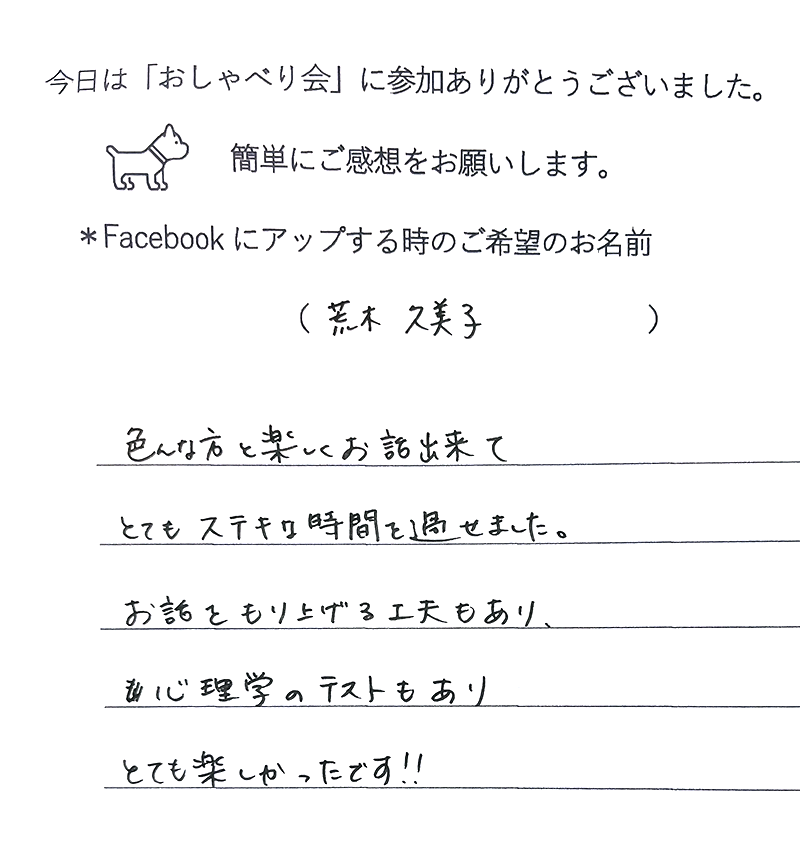 今日は「おしゃべり会」に参加ありがとうございました。
簡単にご感想をお願いします。
＊Facebookにアップする時のご希望のお名前
（荒木 久美子　　　　）
色んな方と楽しくお話出来て
とてもステキな時間を過せました。
お話をもり上げる工夫もあり、
心理学のテストもあり
とても楽しかったです!!